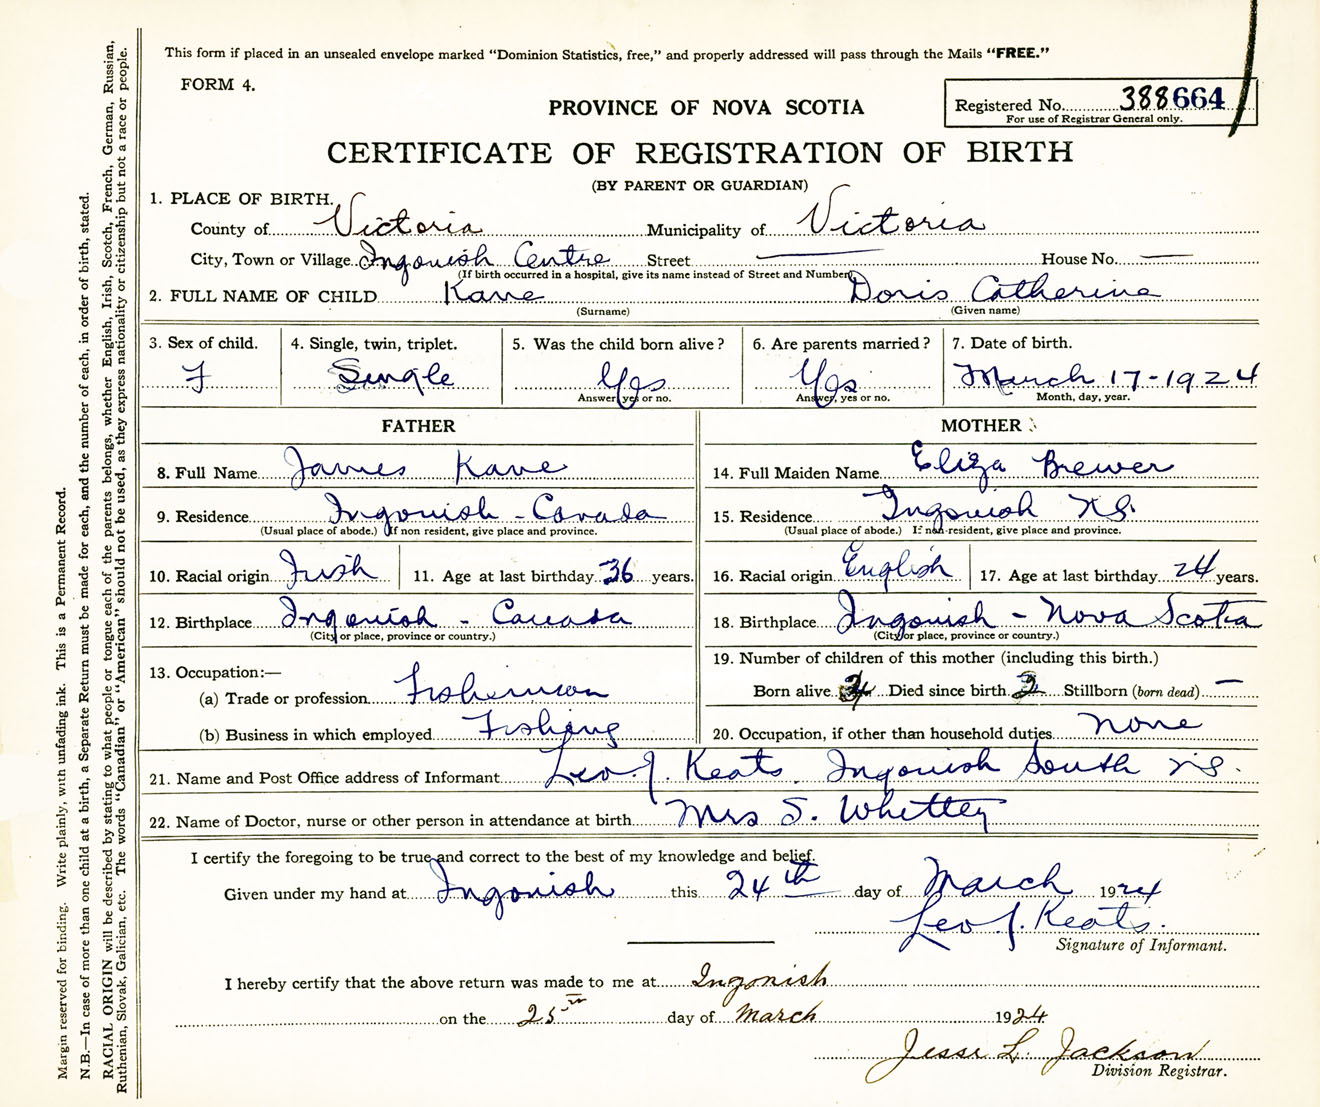 This form if placed in an unsealed envelope marked "Dominion Statistics, free," and properly addressed will pass through the Mails "FREE."
FORM 4.
PROVINCE OF NOVA SCOTIA
Registered No. 388664
For use of Registrar General only.
CERTIFICATE OF REGISTRATION OF BIRTH
(BY PARENT OR GUARDIAN)
1. PLACE OF BIRTH.
County of Victoria Municipality of Victoria
City, Town or Village Ingonish Centre Street — House No. —
(If birth occurred in a hospital, give its name instead of Street and Number)
2. FULL NAME OF CHILD Kane Doris Catherine
(Surname) (Given name)
3. Sex of child. 4. Single, twin, triplet. 5. Was the child born alive? 6. Are parents married? 7. Date of birth.
F Single Yes Yes March 17-1924
Answer yes or no. Answer, yes or no. Month, day, year.
FATHER MOTHER
8. Full Name James Kane 14. Full Maiden Name Eliza Brewer
9. Residence Ingonish - Canada 15. Residence Ingonish N.S.
(Usual place of abode.) If non resident, give place and province. (Usual place of abode.) If non-resident, give place and province.
10. Racial origin Irish 11. Age at last birthday 36 years. 16. Racial origin English 17. Age at last birthday 24 years.
12. Birthplace Ingonish - Canada 18. Birthplace Ingonish - Nova Scotia
(City or place, province or country.) (City or place, province or country.)
13. Occupation:— 19. Number of children of this mother (including this birth.)
(a) Trade or profession Fisherman Born alive Died since birth 2 Stillborn (born dead) —
(b) Business in which employed Fishing 20. Occupation, if other than household duties None
21. Name and Post Office address of Informant Leo. J. Keats. Ingonish South N.S.
22. Name of Doctor, nurse or other person in attendance at birth Mrs S. Whittey
I certify the foregoing to be true and correct to the best of my knowledge and belief.
Given under my hand at Ingonish this 24th day of March 1924
Leo J. Keats.
Signature of Informant.
I hereby certify that the above return was made to me at Ingonish
on the 25th day of March 1924
Jesse L. Jackson
Division Registrar.
Margin reserved for binding. Write plainly, with unfading ink. This is a Permanent Record.
N.B.—In case of more than one child at a birth, a Separate Return must be made for each, and the number of each, in order of birth, stated.
RACIAL ORIGIN will be described by stating to what people or tongue each of the parents belongs, whether English, Irish, Scotch, French, German, Russian,
Ruthenian, Slovak, Galician, etc. The words "Canadian" or "American" should not be used, as they express nationality or citizenship but not a race or people.